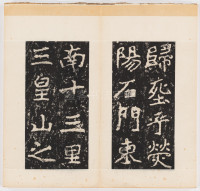 歸坒乎熒
陽石門東
南十三里
三皇山之